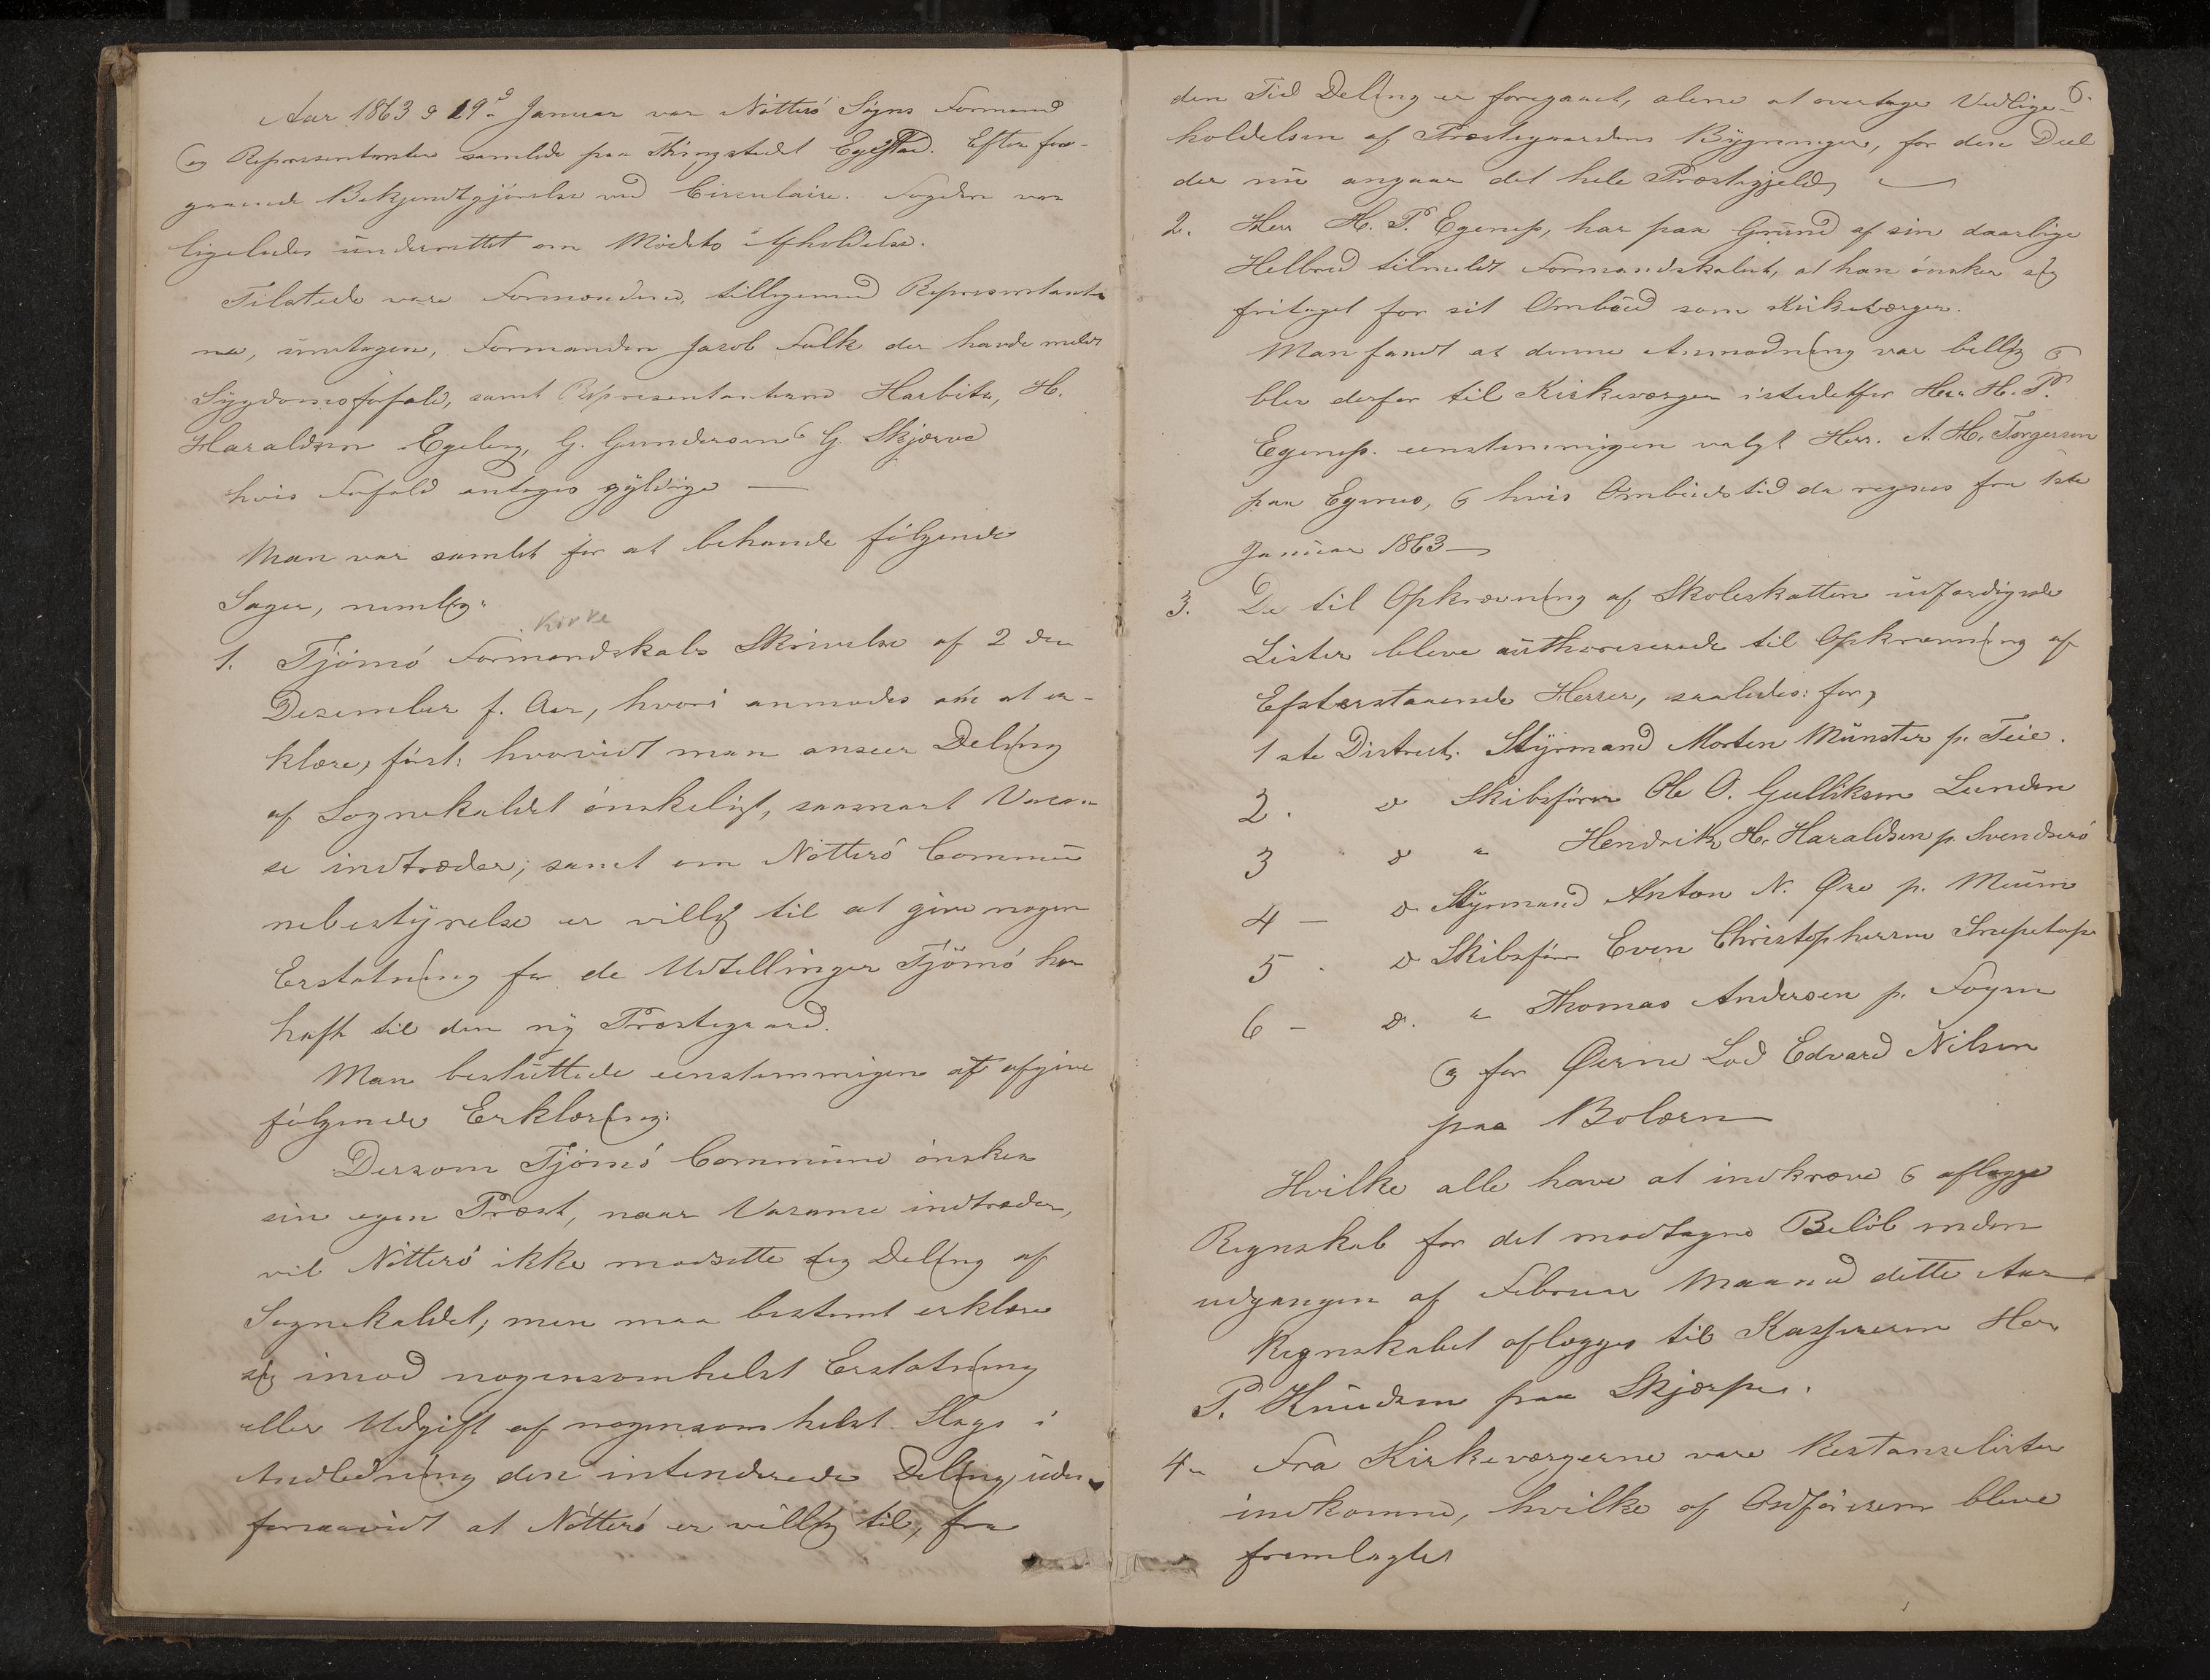 Aar 1863 d 19d Januar var Nötterö Sogns Formænd
og Repræsentanter samlede paa Thingstedet Egestad. Efter fore-
gaaende Bekjendtgjörelse ved Circulaire. Fogden var
ligeledes underrettet om Mödets Afholdelse.
Tilstede vare Formændene, tilligemed Repræsentanter
ne, undtagen, Formanden Jacob Falk der havde meldt
Sygdomsforfald, samt Repræsentanterne Harbitz, H.
Haraldsen Egeberg, G. Gundersen & G. Skjærve
hvis Forfald antoges gyldige —
Man var samlet for at behandle fölgende
Sager, nemlig:
Kirke
1. Tjömö Formandskabs Skrivelse af 2 den
Desember f. Aar, hvori anmodes om at er-
klære, först: hvorvidt man anseer Deling
af Sognekaldet önskeligt, saasnart Vacan-
se indtræder; samt om Nötterö Commu
nebestyrelse er villig til at give nogen
Erstatning for de Udtellinger Tjömö har
haft til den ny Præstegaard.
Man besluttede eenstemmigen at afgive
fölgende Erklæring:
Dersom Tjömö Commune önsker
sin egen Præst, naar Vacanse indtræder,
vil Nötterö ikke modsette sig Deling af
Sognekaldet; men maa bestemt erklære
sig imod nogensomhelst Erstatning
eller Udgift af nogensomhelst Slags i
Andledning den intenderede Deling, uden
forsaavidt at Nötterö er villig til, fra
6.
den Tid Deling er foregaaet, alene at overtage Vedlige-
holdelsen af Præstegaardens Bygninger, for den Deel
der nu angaar det hele Præstegjeld,
2. Herr H. P. Egenes, har paa Grund af sin daarlige
Helbred tilmeldt Formandskabet, at han önsker sig
fritaget for sit Ombud som Kirkeværger.
Man fandt at denne Anmodning var billig &
blev derfor til Kirkeværger istedetfor Herr H. P.
Egenes. eenstemmigen valgt Herr. A. H. Torgersen
paa Egenes, & hvis Ombudstid da regnes fra 1ste
Januar 1863 —
3. De til Opkrævning af Skoleskatten udfærdigede
Lister bleve authoriserede til Opkrævning af
Efterstaaende Herrer, saaledes: for,
1 ste District. Styrmand Morten Münster p. Teie.
2. do Skibsförer Ole O. Gulliksen Lunden
3 do " Hendrik H. Haraldsen p. Svendserö
4 — do Styrmand Anton N. Øre p. Meum
5. do Skibsförer Even Christophersen
6 — do. " Thomas Andersen p. Foyen
og for Øerne Lods Edvard Nilsen
paa Bolærn
Hvilke alle have at indkræve & aflægge
Regnskab for det modtagne Belöb inden
udgangen af Februar Maaned dette Aar
Regnskabet aflægges til Kassereren Herr
P. Knudsen paa Skjærpe.
4. Fra Kirkeværgerne vare Restanselister
indkomne, hvilke af Ordföreren bleve
fremlagte